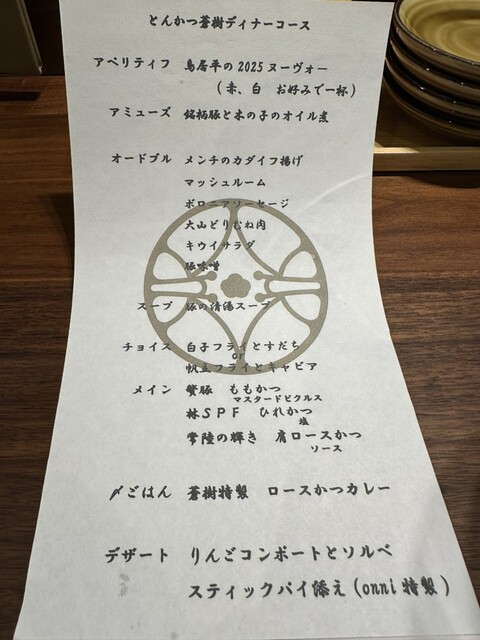 とんかつ蒼樹ディナーコース
アペリティフ 鳥居平の2025ヌーヴォー
(赤、白 お好みで一杯)
アミューズ 銘柄豚と木の子のオイル煮
オードブル メンチのカダイフ揚げ
マッシュルーム
ボローニアソーセージ
大山どりむね肉
キウイサラダ
豚味噌
スープ 豚の清湯スープ
チョイス 白子フライとすだち
or
帆立フライとキャビア
メイン 蟹豚 ももかつ
マスタードピクルス
林SPF ひれかつ
塩
常陸の輝き 肩ロースかつ
ソース
〆ごはん 蒼樹特製 ロースかつカレー
デザート りんごコンポートとソルベ
スティックパイ添え(onni特製)